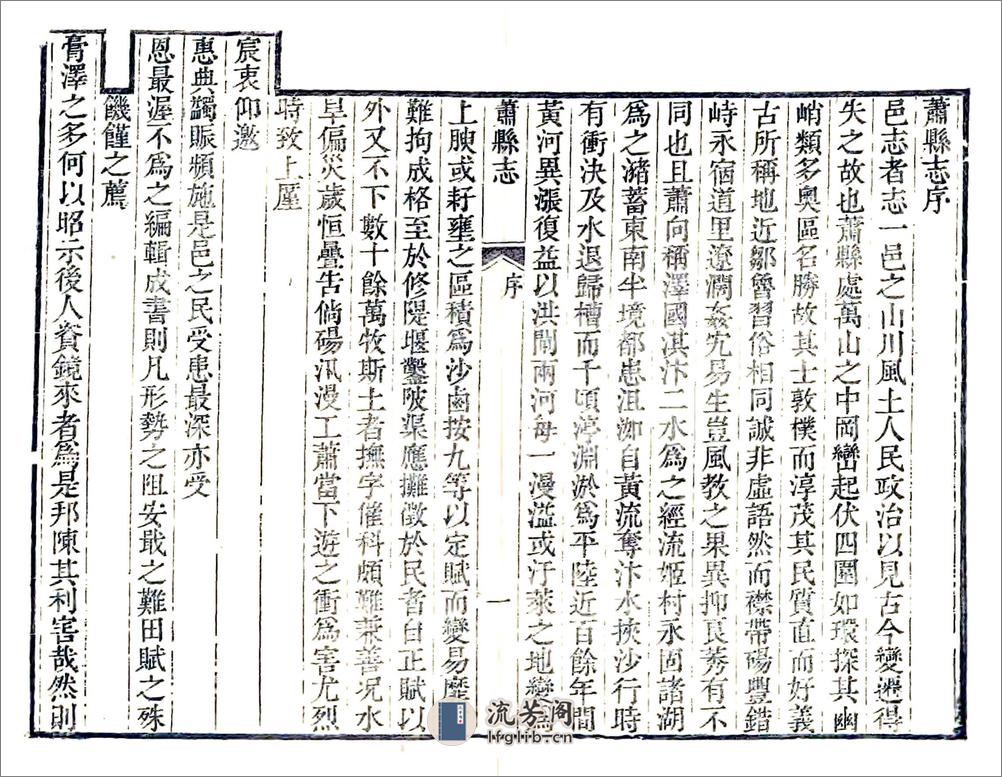 蕭縣志序
邑志者志一邑之山川風土人民政治以見古今變遷得
失之故也蕭縣處萬山之中岡巒起伏四圍如環探其幽
峭類多奧區名勝故其士敦樸而淳茂其民質直而好義
古所稱地近鄒魯習俗相同誠非虛語然而襟帶碭豐錯
峙永宿道里遼濶姦宄易生豈風教之果異抑良莠有不
同也且蕭向稱澤國淇汴二水為之經流姬村永固諸湖
為之瀦蓄東南半境都患沮洳自黃流奪汴水挾沙行時
有衝決及水退歸槽而千頃渟淵淤為平陸近百餘年間
黃河異漲復益以洪閘兩河每一漫溢或汙萊之地變為
蕭縣志
序
一
上腴或耔壅之區積為沙鹵按九等以定賦而變易靡
難拘成格至於修隄堰鑿陂渠應攤徵於民者自正賦以
外又不下數十餘萬牧斯土者撫字催科頗難兼善況水
旱偏災歲恒疊告倘碭汛漫工蕭當下遊之衝為害尤烈
時致上厪
宸衷仰邀
惠典蠲賑頻施是邑之民受患最深亦受
恩最渥不為之編輯成書則凡形勢之阻安戢之難田賦之殊
饑饉之薦
膏澤之多何以昭示後人資鏡來者為是邦陳其利害哉然則
流芳阁
lfglib.cn